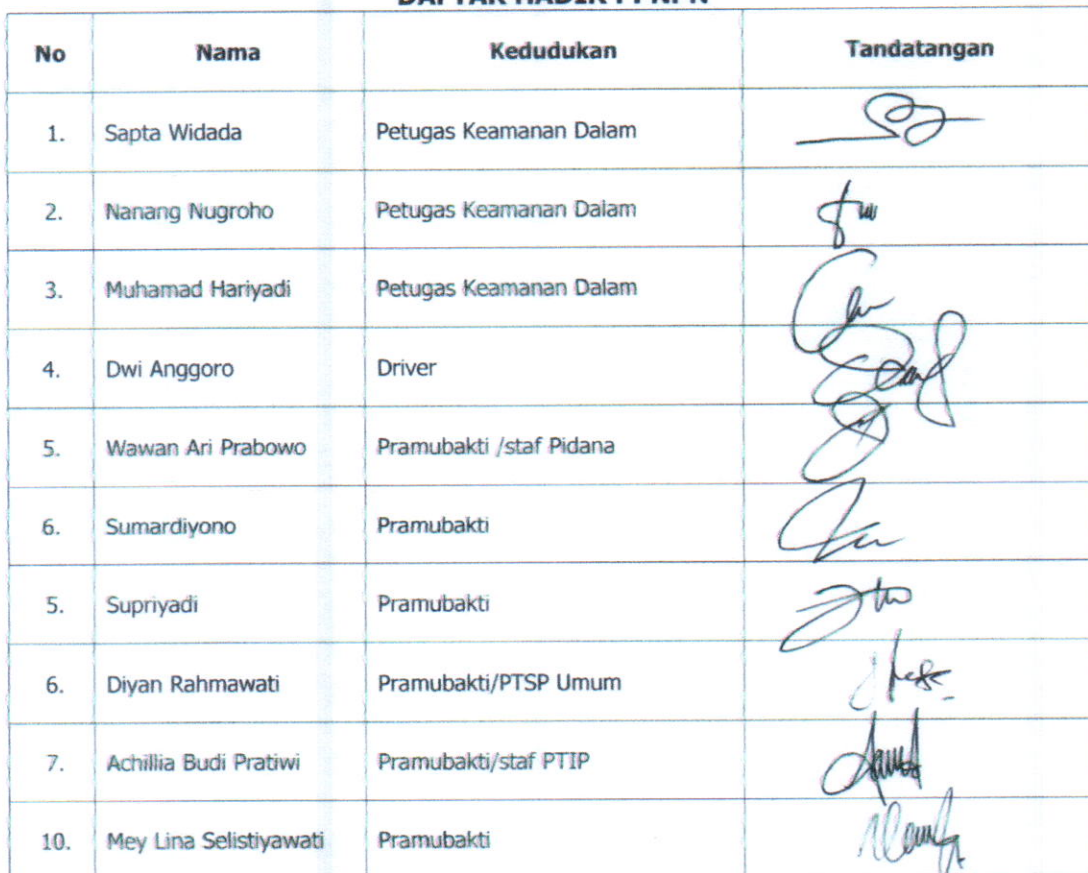 DAFTAR HADIR PPNPN
No Nama Kedudukan Tandatangan
1. Sapta Widada Petugas Keamanan Dalam
2. Nanang Nugroho Petugas Keamanan Dalam
3. Muhamad Hariyadi Petugas Keamanan Dalam
4. Dwi Anggoro Driver
5. Wawan Ari Prabowo Pramubakti /staf Pidana
6. Sumardiyono Pramubakti
5. Supriyadi Pramubakti
6. Diyan Rahmawati Pramubakti/PTSP Umum
7. Achillia Budi Pratiwi Pramubakti/staf PTIP
10. Mey Lina Selistiyawati Pramubakti